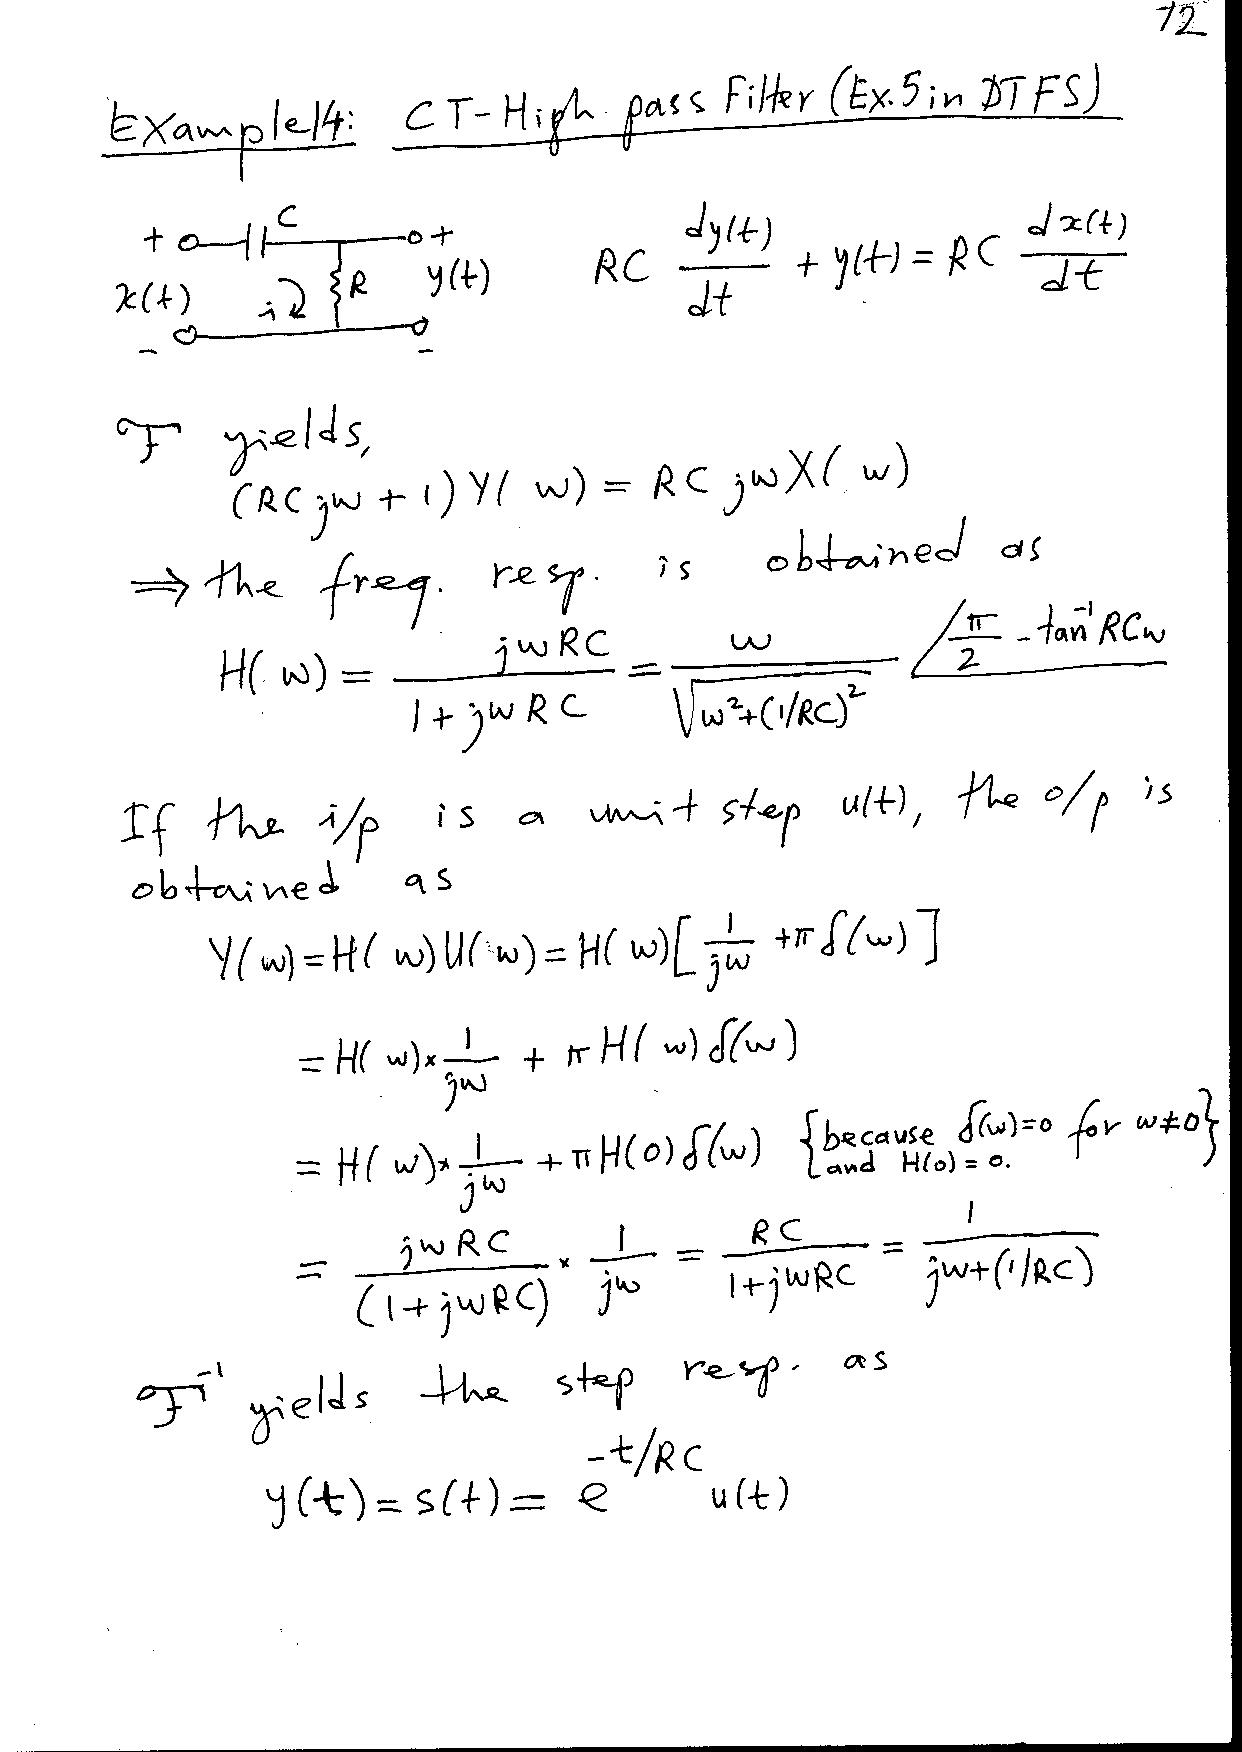 72
Example 14: CT-High pass Filter (Ex.5 in DTFS)
+ C +
x(t) i R y(t)
- -
RC dy(t)/dt + y(t) = RC dx(t)/dt
F yields,
(RCjw + 1) Y( w) = RC jwX( w)
⇒ the freq. resp. is obtained as
H( w) = jwRC/(1 + jwRC) = w/√(w²+(1/RC)²) ∠π/2 - tan⁻¹RCw
If the i/p is a unit step u(t), the o/p is
obtained as
Y(w) = H( w)U( w) = H( w)[1/jw + πδ(w)]
= H( w) × 1/jw + πH( w)δ(w)
= H( w) × 1/jw + πH(0)δ(w) {because δ(w)=0 for w≠0}
and H(0) = 0.
= jwRC/(1+jwRC) × 1/jw = RC/(1+jwRC) = 1/(jw+(1/RC))
F⁻¹ yields the step resp. as
y(t) = s(t) = e^(-t/RC) u(t)